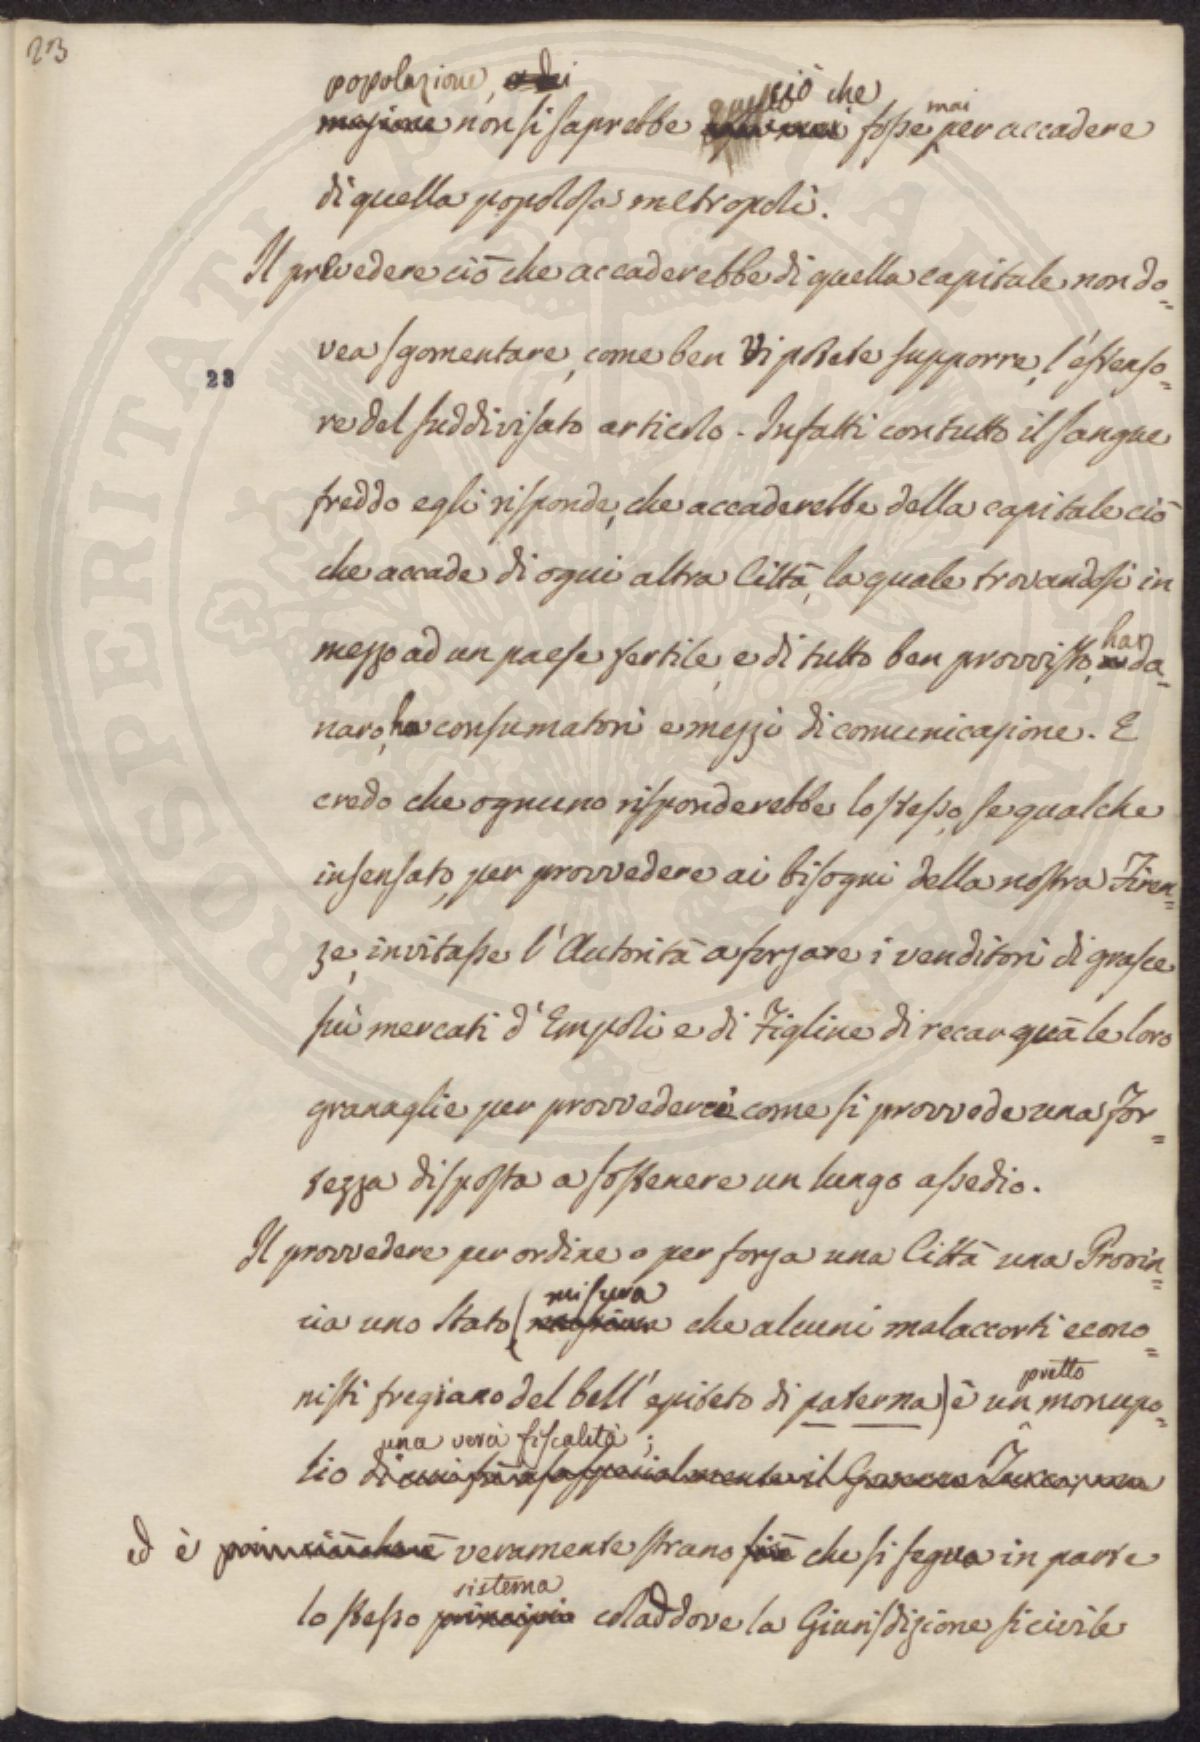 23
popolazione, ciò che mai
non si saprebbe fosse per accadere
di quella popolosa metropoli.
Il prevedere ciò che accaderebbe di quella capitale non do=
vea sgomentare, come ben Vi potete supporre, l'estenso=
28
re del suddivisato articolo. Infatti con tutto il sangue
freddo egli risponde, che accaderebbe della capitale ciò
che accade di ogni altra Città, la quale trovandosi in
mezzo ad un paese fertile, e di tutto ben provvisto, ha da=
naro, ha consumatori e mezzi di comunicazione. E
credo che ognuno risponderebbe lo stesso, se qualche
insensato, per provvedere ai bisogni della nostra Firen=
ze, invitasse l'Autorità a forzare i venditori di grasce
sui mercati d'Empoli e di Figline di recar quà le loro
granaglie per provvederci come si provvede una For=
tezza disposta a sostenere un lungo assedio.
Il provvedere per ordine o per forza una Città una Provin=
misura
cia uno Stato ( che alcuni malaccorti econo=
pretto
nisti fregiano del bell'epiteto di paterna) è un monupo=
una vera fiscalità;
lio di
ed è veramente strano che si segua in parte
sistema
lo stesso principio coladdove la Giurisdizione si civile
PROSPERITATI PUBLICAE